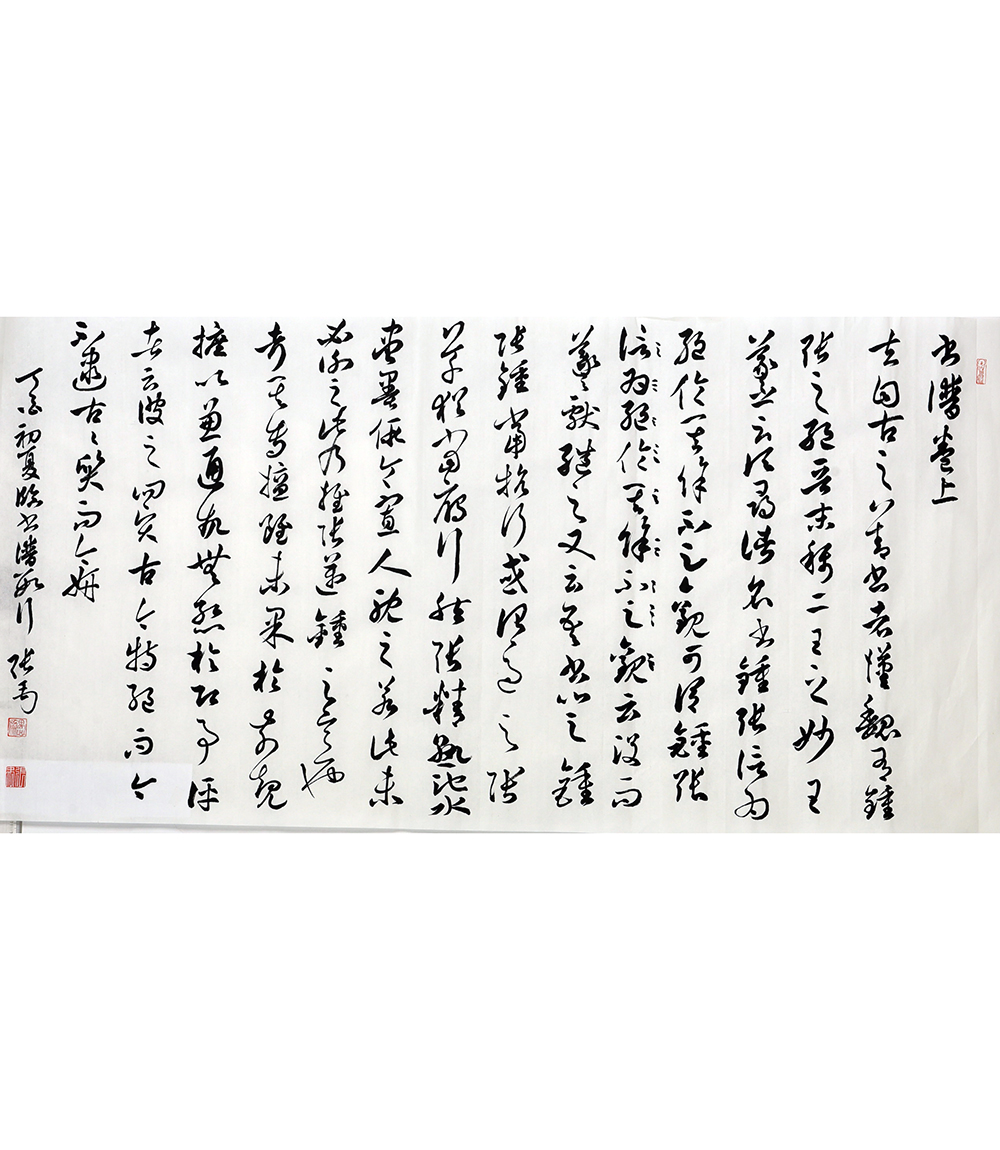 書譜卷上
夫自古之善書者漢魏有鍾
張之絕晉末稱二王之妙王
羲之云頃尋諸名書鍾張信為
絕倫其餘不足觀可謂鍾張
信為絕倫其餘不足觀云沒而
羲獻繼之又云吾書比之鍾
張鍾當抗行或謂過之張
草猶當雁行然張精熟池水
盡墨假令寡人耽之若此未
必謝之此乃推張邁鍾之意也
考其專擅雖未果於前規
摭以兼通故無慚於即事評
者云彼之四賢古今特絕而今
不逮古古質而今妍
初夏臨書譜數行 張